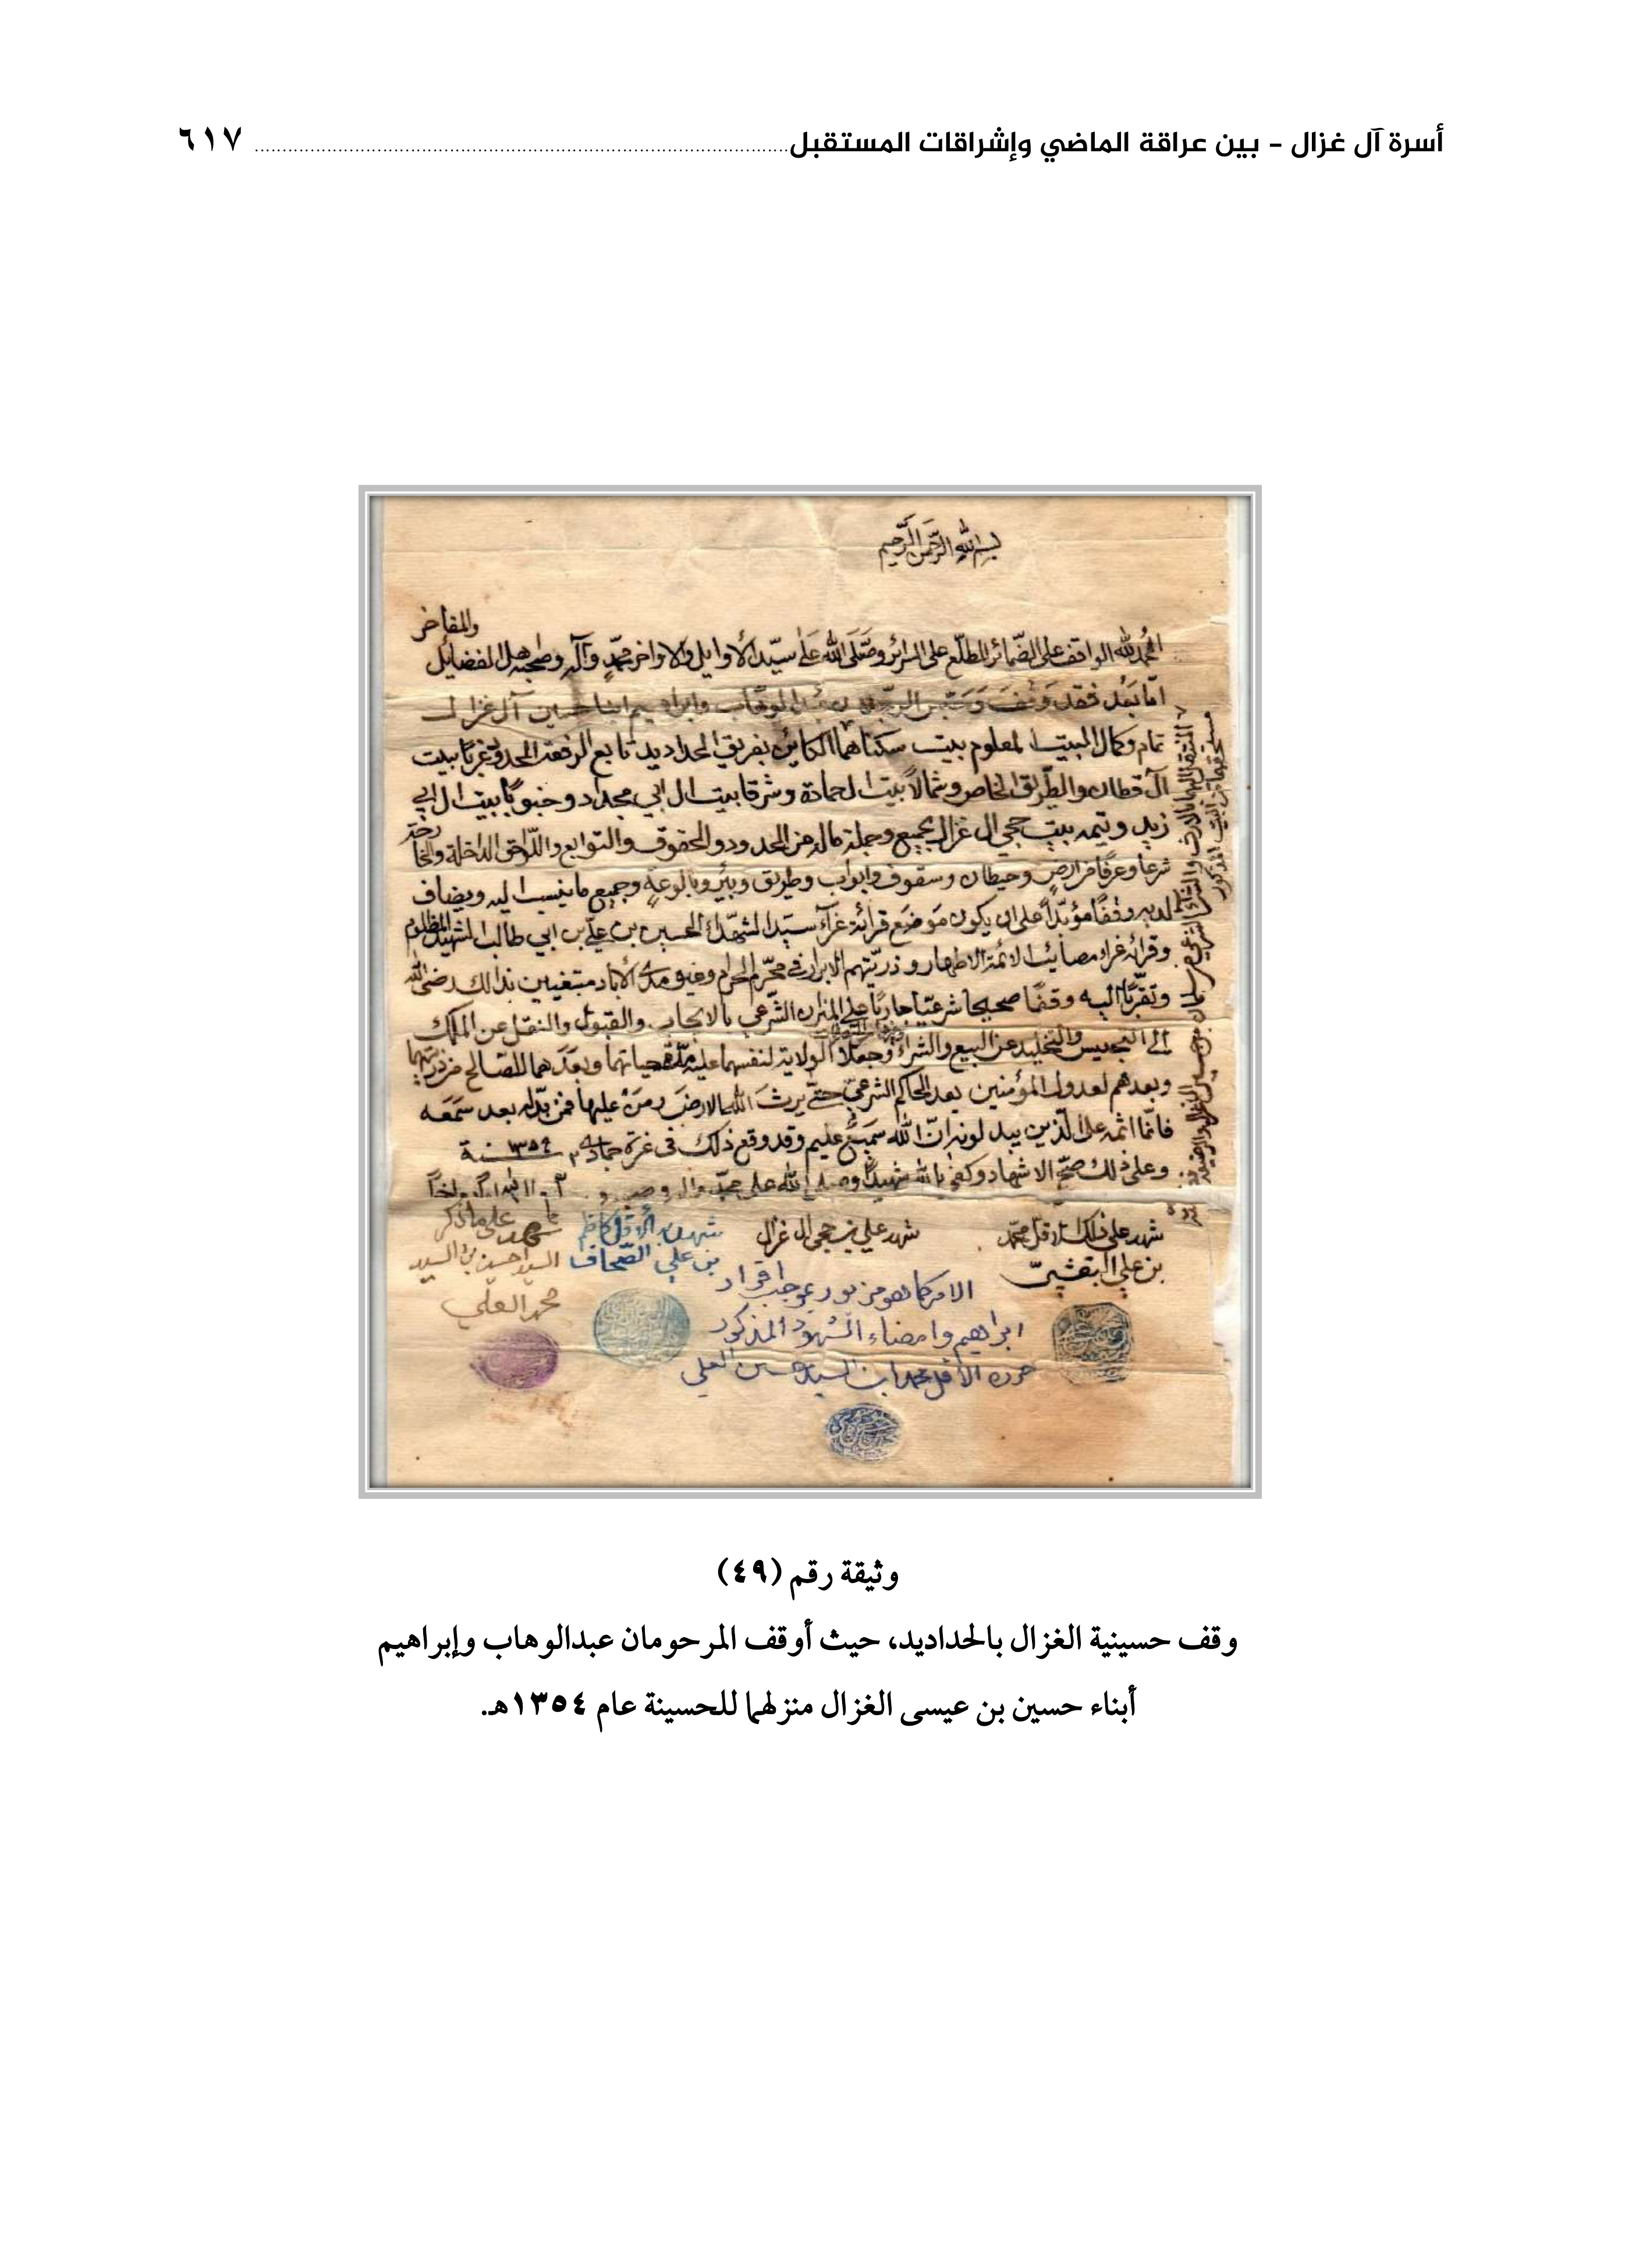 أسرة آل غزال - بين عراقة الماضي وإشراقات المستقبل ٦١٧
بسم الله الرحمن الرحيم
والمفاخر
الحمد لله الواقف على الضمائر المطلع على السرائر وصلى الله على سيد الأوايل والاواخر محمد وآله وصحبه اهل الفضائل
امّا بعد فقد وقف وحبس الرجلان عبد الوهاب وابراهيم ابنا حسين آل غزال
تمام وكمال البيت المعلوم بيت سكناهما الكائن بفريق الحداديد تابع الرفعة المحدود غربًا بيت
آل قطان والطريق الخاص وشمالًا بيت ال حمادة وشرقا بيت ال ابي مجداد وجنوبًا بيت ال ابي
زيد وتيمه بيت حجي ال غزال بجميع وجملة ماله من الحدود والحقوق والتوابع واللواحق الداخلة والخارجة
شرعا وعرفًا من ارض وحيطان وسقوف وابواب وطريق وبئر وبالوعة وجميع ما ينسب اليه ويضاف
لديه وقفًا مؤبدًا على ان يكون موضع قرائة عزآء سيد الشهداء الحسين بن علي بن ابي طالب الشهيد المظلوم
وقرائة عزاء مصائب الائمة الاطهار وذريتهم الابرار في محرم الحرام وغيره مدى الأباد مبتغيين بذالك رضى الله
وتقربًا اليه وقفًا صحيحا شرعيّا جاريًا على المنزان الشرعي بالايجاب والقبول والنقل عن الملك
الى التحبيس والتخليد عن البيع والشراء وجعلا الولاية لنفسهما عليه مدة حياتهما وبعدهما للصالح من ذريتهما
وبعدهم لعدول المؤمنين بعد الحاكم الشرعي حتى يرث الله الارض ومن عليها فمن بدله بعد سمعه
فانما اثمه على الذين يبدلونه ان الله سميع عليم وقد وقع ذلك في غرة جماد ٢ سنة ١٣٥٤
وعلى ذلك صح الاشهاد وكفى بالله شهيدًا وصلى الله على محمد وال
شهد على ذلك الاقل محمد
بن علي البقشي
شهد علي بن حجي ال غزال
شهد به الأقل كاظم
بن علي الصحاف
شهد على ما ذكر
السيد حسين بن السيد
محمد العلي
الامر كما هو مزبور بموجب اقرار
ابراهيم وامضاء الشهود المذكور
حرره الأقل محمد ابن السيد حسين العلي
وثيقة رقم (٤٩)
وقف حسينية الغزال بالحداديد، حيث أوقف المرحومان عبدالوهاب وإبراهيم
أبناء حسين بن عيسى الغزال منزلهما للحسينة عام ١٣٥٤هـ.